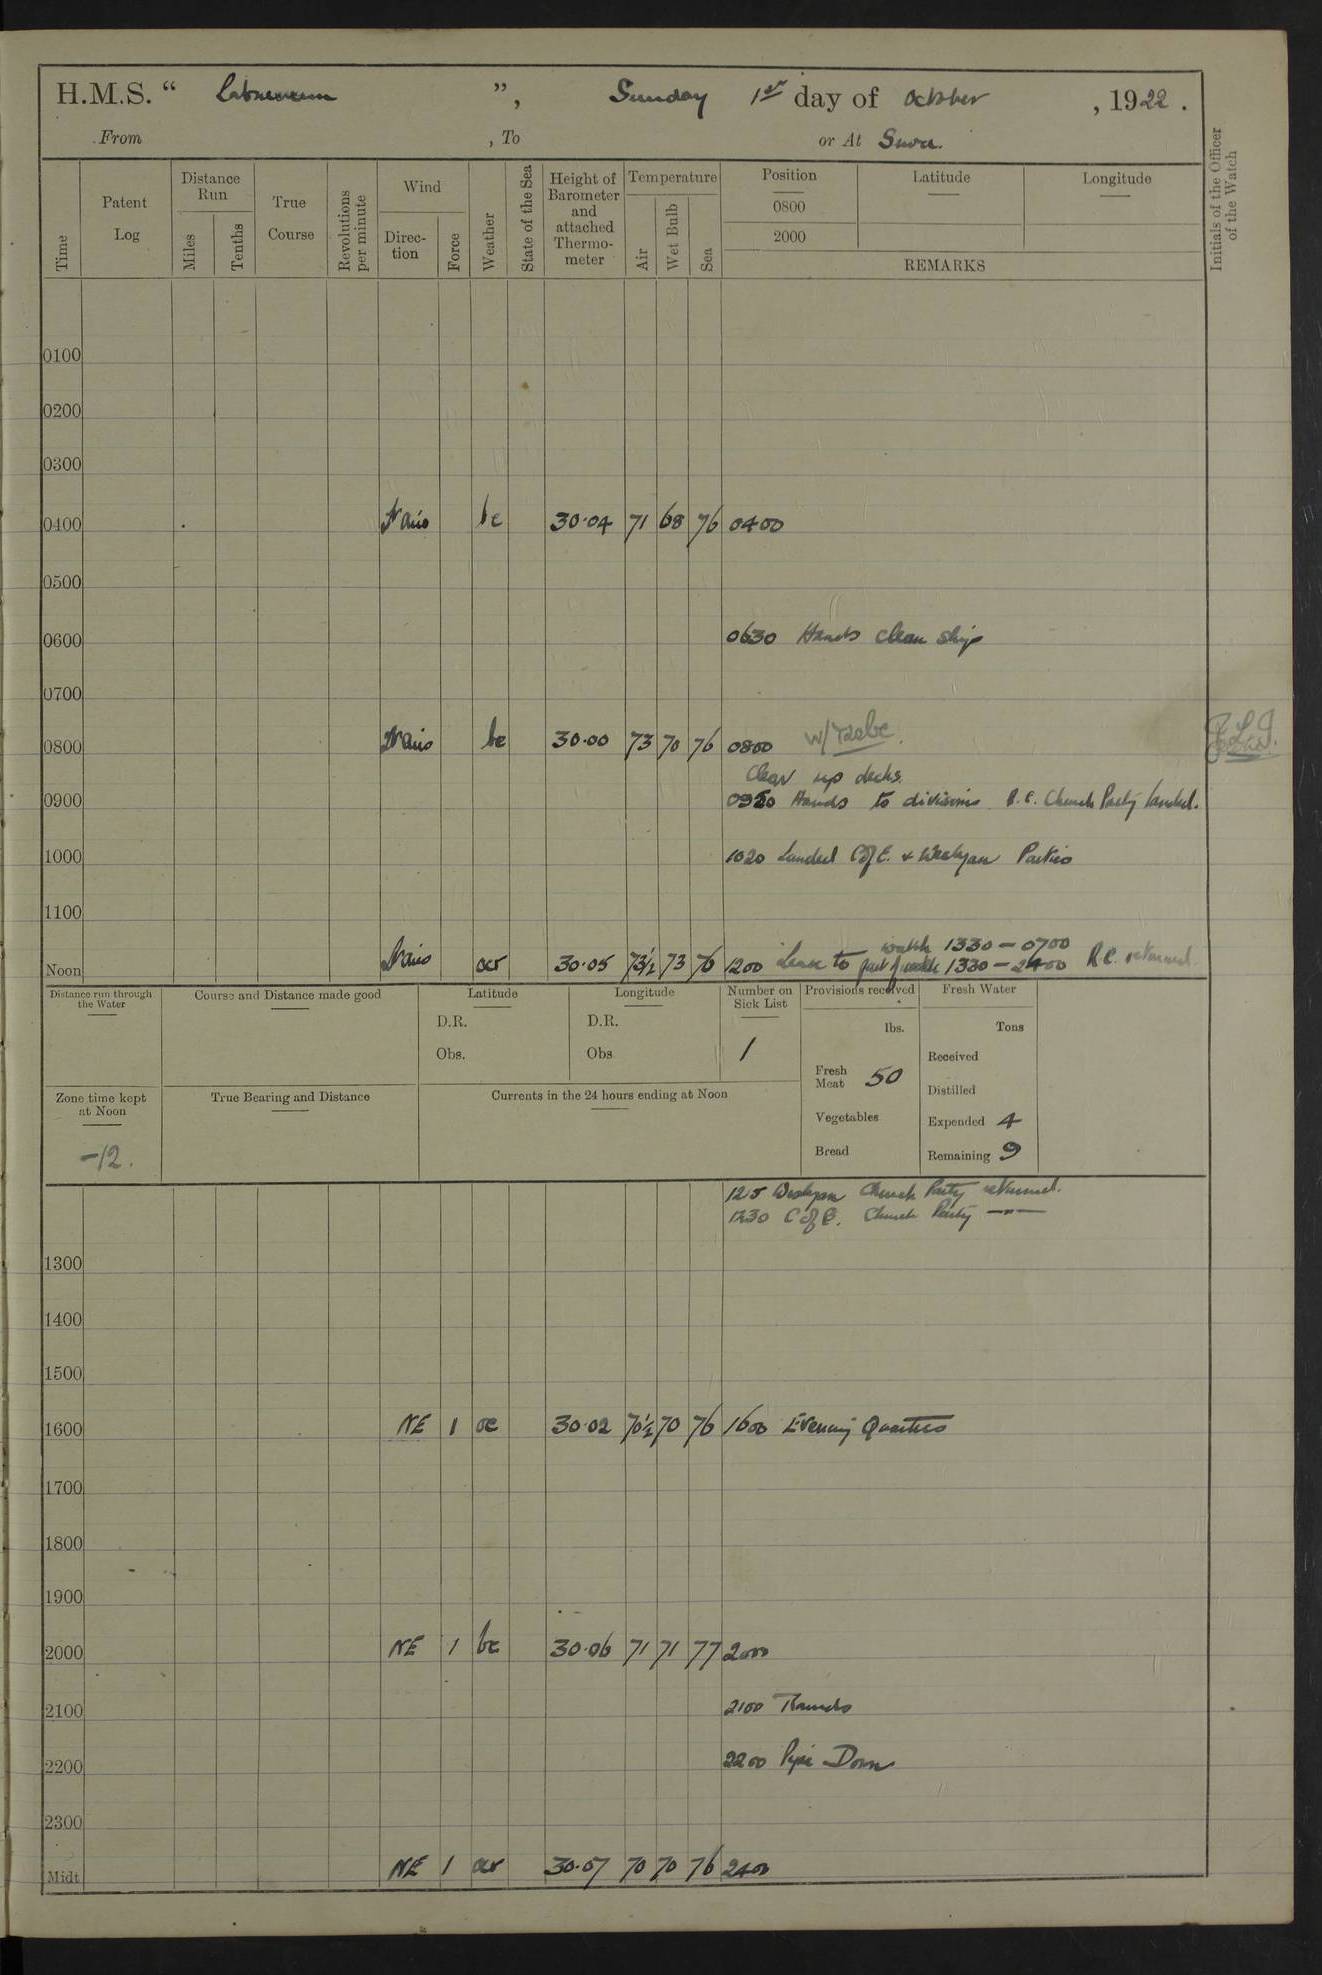 H.M.S. “ Laburnum ”, Sunday 1st day of October , 1922 .
From , To or At Suva.
Time
Patent Log
Distance Run
Miles
Tenths
True Course
Revolutions per minute
Wind
Direction
Force
Weather
State of the Sea
Height of Barometer and attached Thermometer
Temperature
Air
Wet Bulb
Sea
Position
0800
2000
Latitude
Longitude
REMARKS
Initials of the Officer of the Watch
0100
0200
0300
0400 bc 30.04 71 68 76 0400
0500
0600 0630 Hands clean ship
0700
0800 bc 30.00 73 70 76 0800
Clear up decks.
0900 Hands to divisions R.C. Church Party landed.
1000 1020 Landed C of E. & Wesleyan Parties
1100
watch 1330 - 0700
Noon 30.05 73½ 73 76 1200 Leave to part of watch 1330 - 2400 R.C. returned
Distance run through the Water
Course and Distance made good
Latitude
D.R.
Obs.
Longitude
D.R.
Obs
Number on Sick List
1
Provisions received
lbs.
Fresh Meat 50
Vegetables
Bread
Fresh Water
Tons
Received
Distilled
Expended 4
Remaining 9
Zone time kept at Noon
-12.
True Bearing and Distance
Currents in the 24 hours ending at Noon
Wesleyan Church Party returned.
1230 C of E. Church Party —"—
1300
1400
1500
1600 NE 1 oc 30.02 70½ 70 76 1600 Evening Quarters
1700
1800
1900
2000 NE 1 bc 30.06 71 71 77 2000
2100 2100 Rounds
2200 2200 Pipe Down
2300
Midt NE 1 30.07 70 70 76 2400